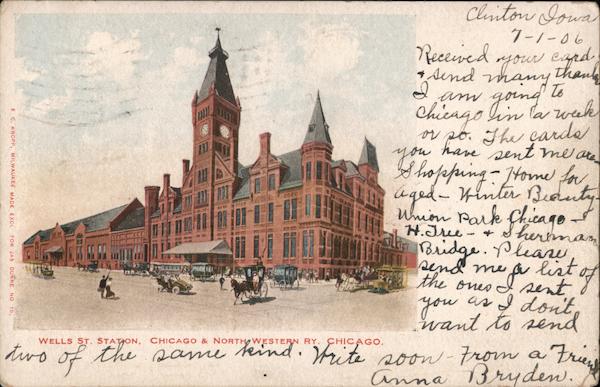 Clinton Iowa
7-1-06
Received your card
& send many thanks
I am going to
Chicago in a week
or so. The cards
you have sent me are
Shopping - Home for
Aged - Winter Beauty -
Union Park Chicago -
H. Tree - & Sherman
Bridge. Please
send me a list of
the ones I sent
you as I don't
want to send
two of the same kind. Write soon - From a Friend
Anna Bryden.
WELLS ST. STATION, CHICAGO & NORTH-WESTERN RY. CHICAGO.
E. C. KROPP, MILWAUKEE MADE EXC. FOR JAS